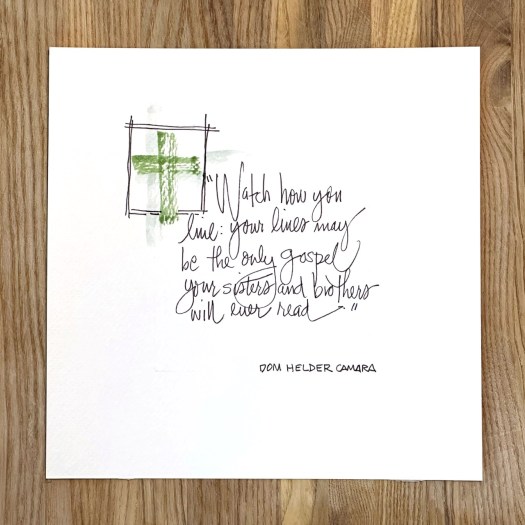 "Watch how you
live: your lives may
be the only gospel
your sisters and brothers
will ever read."
DOM HELDER CAMARA